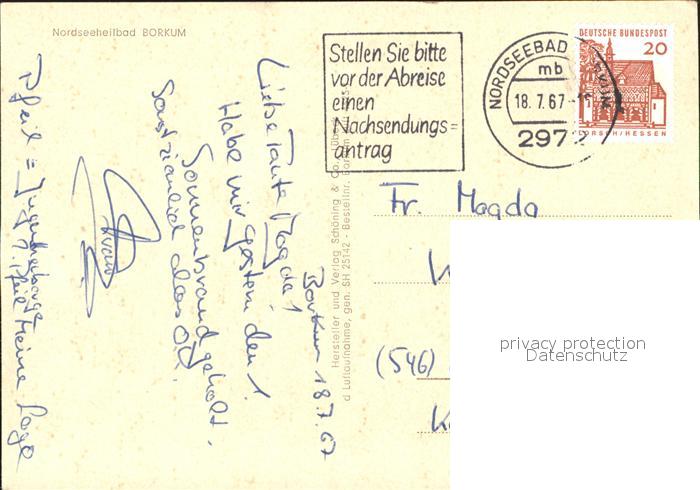 Nordseeheilbad BORKUM
Stellen Sie bitte
vor der Abreise
einen
Nachsendungs=
antrag
NORDSEEBAD
mb
18.7.67
297
DEUTSCHE BUNDESPOST
20
LORSCH/HESSEN
Borkum 18.7.67
Liebe Tante Magda!
Habe mir gestern den 1.
Sonnenbrand geholt.
Sonst ziemlich
Pfeil = Jugendherberge
1. Pfeil Meine Lage
Hersteller und Verlag Schöning & Co
d Luftaufnahme, gen. SH 25142 - Bestellnr. Borkum
Fr. Magda
(546)
privacy protection
Datenschutz